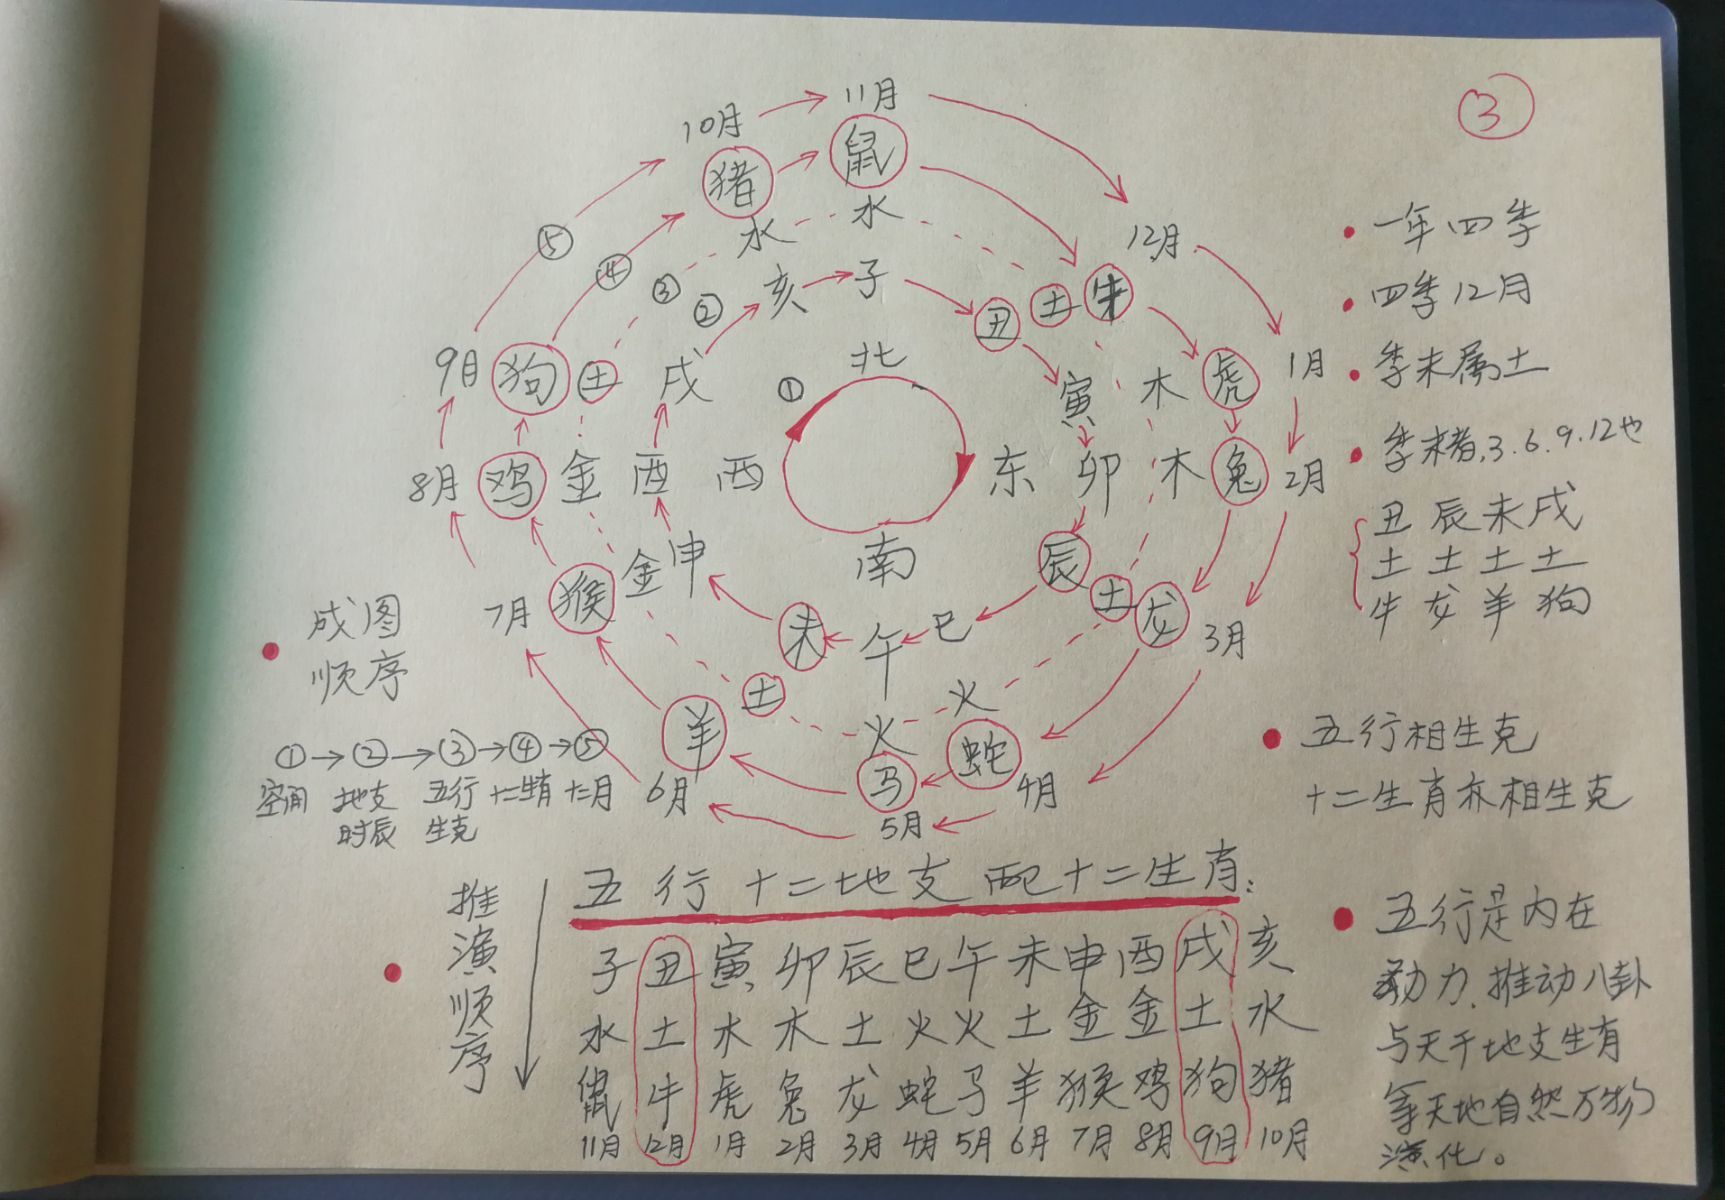 ③
10月 11月
猪 鼠
水 水
12月
⑤ ④ ③ ② 亥 子
丑 土 牛
9月 狗 土 戌 ① 北 寅 木 虎 1月
8月 鸡 金 酉 西 东 卯 木 兔 2月
7月 猴 金 申 南 辰 土 龙 3月
未 午 巳
土 火 火
羊 马 蛇
6月 5月 4月
一年四季
四季12月
季末属土
季末者,3.6.9.12也
丑 辰 未 戌
土 土 土 土
牛 龙 羊 狗
成图
顺序
①→②→③→④→⑤
空间 地支 五行 十二生肖 十二月
时辰 生克
五行相生克
十二生肖亦相生克
五行 十二地支 配十二生肖:
推演顺序
子 丑 寅 卯 辰 巳 午 未 申 酉 戌 亥
水 土 木 木 土 火 火 土 金 金 土 水
鼠 牛 虎 兔 龙 蛇 马 羊 猴 鸡 狗 猪
11月 12月 1月 2月 3月 4月 5月 6月 7月 8月 9月 10月
五行是内在
动力,推动八卦
与天干地支生肖
等天地自然万物
演化。